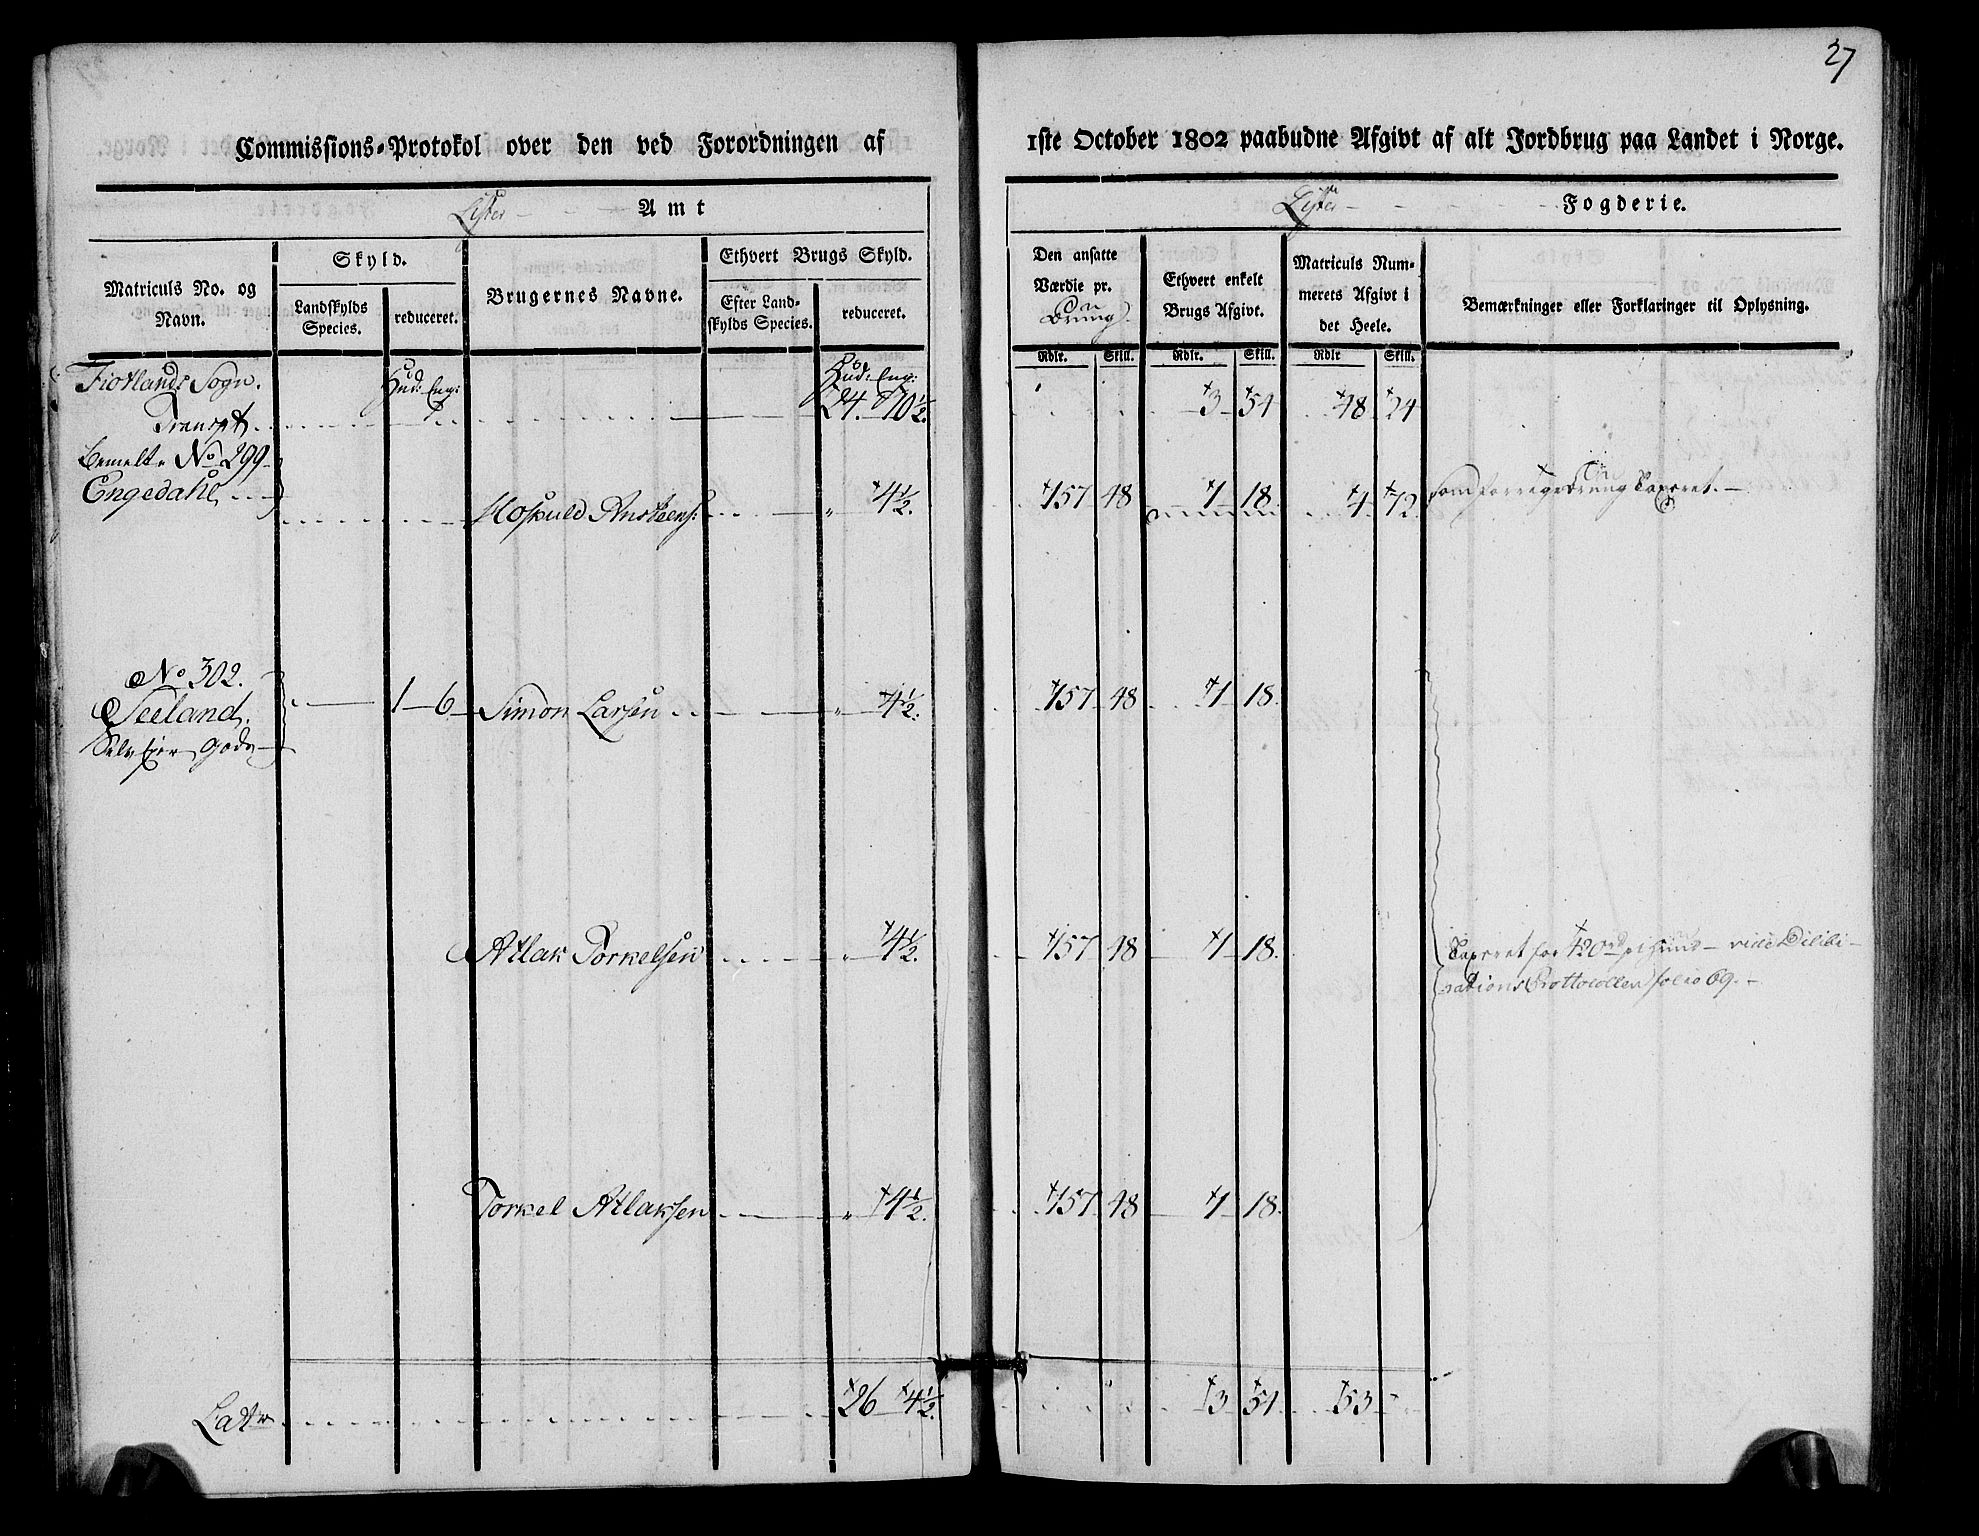 27
Commissions-Protokol over den ved Forordningen af
1ste October 1802 paabudne Afgivt af alt Jordbrug paa Landet i Norge.
Lister Amt
Lister Fogderie.
Matriculs No. og Navn.
Skyld.
Landskylds Species.
reduceret.
Brugernes Navne.
Ethvert Brugs Skyld.
Efter Landskylds Species.
reduceret.
Den ansatte Værdie pr.
Ethvert enkelt Brugs Afgivt.
Matriculs Nummerets Afgivt i det Heele.
Bemærkninger eller Forklaringer til Oplysning.
Rdlr. Skill. Rdlr. Skill. Rdlr Skill.
Fiotlands Sogn. Hud: Eng: Hud: Eng:
Transpt. 24. 10½ 3 54 48 24
Bemelte No 299
Engedahl
Hospuld Ansteens: " 4½. 157 48 1 18 4 72 som forrige Taxeret.
No 302.
Seeland. 1 6 Simon Larsen " 4½. 157 48 1 18.
Selv Ejer Gods
Atlak Torkelsen " 4½. 157 48 1 18. Taxeret for 420 rd pr hud vide Delibe-
rations Prottocollen folio 69.
Torkel Atlaksen " 4½. 157 48 1 18.
Lat 26 4½. 3 54 53